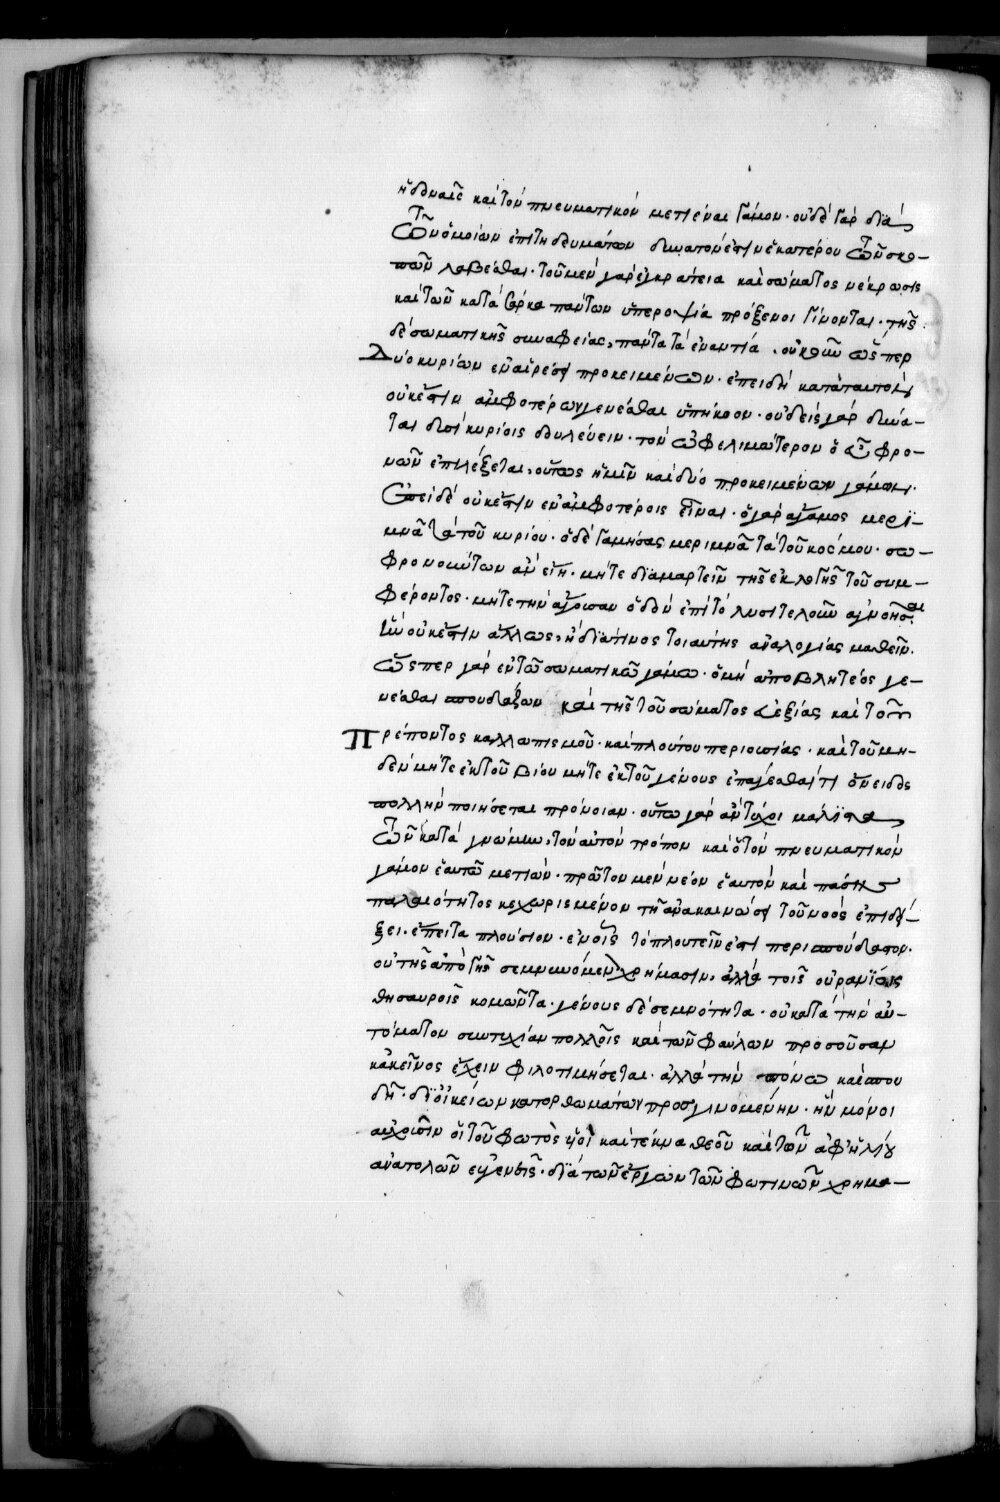 ἡδοναῖς καὶ τὸν πνευματικὸν μετιέναι γάμον· οὐδὲ γὰρ διὰ
τῶν ὁμοίων ἐπιτηδευμάτων δυνατὸν ἐστὶν ἑκατέρου τῶν σκο-
πῶν λαβέσθαι· τοῦ μὲν γὰρ ἐγκράτεια καὶ σώματος νέκρωσις
καὶ τῶν κατὰ σάρκα πάντων ὑπεροψία πρόξενοι γίνονται· τῆς
δὲ σωματικῆς συναφείας, πάντα τὰ ἐναντία. οὐκοῦν ὥσπερ
δύο κυρίων ἐν αἱρέσει προκειμένων· ἐπειδὴ κατὰ ταυτὸν
οὐκ ἔστιν ἀμφοτέρων γενέσθαι ὑπήκοον· οὐδεὶς γὰρ δύνα-
ται δυσὶ κυρίοις δουλεύειν· τὸν ὠφελιμώτερον ὁ εὖ φρο-
νῶν ἐπιλέξεται, οὕτως ἡμῖν καὶ δύο προκειμένων γάμων.
ἐπειδὲ οὐκ ἔστιν ἐν ἀμφοτέροις εἶναι· ὁ γὰρ ἄγαμος μερι-
μνᾶ τὰ τοῦ κυρίου· ὁ δὲ γαμήσας μεριμνᾶ τὰ τοῦ κόσμου· σω-
φρονούντων ἂν εἴη· μήτε διαμαρτεῖν τῆς ἐκλογῆς τοῦ συμ-
φέροντος· μήτε τὴν ἄγουσαν ὁδὸν ἐπὶ τὸ λυσιτελοῦν ἀγνοῆσαι
ἣν οὐκ ἔστιν ἄλλως, ἢ διὰ τινος τοιαύτης ἀναλογίας μαθεῖν.
ὥσπερ γὰρ ἐν τῶ σωματικῶ γάμω· ὁ μὴ ἀποβλητέος γε-
νέσθαι σπουδάζων καὶ τῆς τοῦ σώματος εὐεξίας καὶ τοῦ
πρέποντος καλλωπισμοῦ· καὶ πλούτου περιουσίας· καὶ τοῦ μη-
δὲν μήτε ἐκ τοῦ βίου μήτε ἐκ τοῦ γένους ἐπάγεσθαί τι ὄνειδος
πολλὴν ποιήσεται πρόνοιαν· οὕτω γὰρ ἂν τύχοι μάλιστα
τῶν κατὰ γνώμην, τὸν αὐτὸν τρόπον καὶ ὁ τὸν πνευματικὸν
γάμον ἑαυτῶ μετιὼν· πρῶτον μὲν νέον ἑαυτὸν καὶ πάσης
παλαιότητος κεχωρισμένον τῆ ἀνακαινώσει τοῦ νοὸς ἐπιδεί-
ξει. ἔπειτα πλούσιον· ἐν οἷς τὸ πλουτεῖν ἐστι περισπούδαστον.
οὐ τοῖς ἀπὸ γῆς σεμνυνόμενον χρήμασιν, ἀλλὰ τοῖς οὐρανίοις
θησαυροῖς κομῶντα· γένους δὲ σεμνότητα· οὐ κατὰ τὴν αὐ-
τόματον συντυχίαν πολλοῖς καὶ τῶν φαύλων προσοῦσαν
κἀκεῖνος ἔχειν φιλοτιμήσεται· ἀλλὰ τὴν πόνω καὶ σπου
δῆ· δι᾽ οἰκείων κατορθωμάτων προσγινομένην· ἣν μόνοι
αὐχοῦσιν οἱ τοῦ φωτὸς υἱοὶ καὶ τέκνα θεοῦ καὶ τῶν ἀφ᾽ ἡλίου
ἀνατολῶν εὐγενεῖς· διὰ τῶν ἔργων τῶν φωτινῶν χρημα-